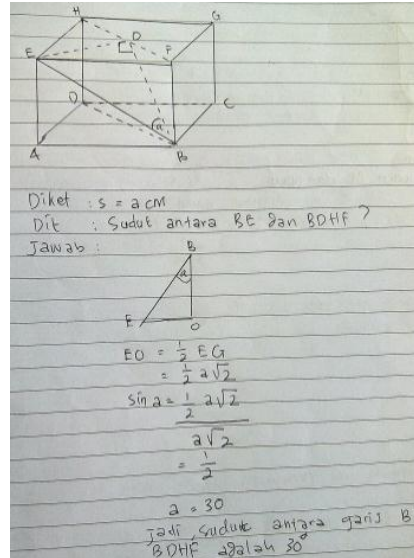 H G
E O F
D C
a
A B
Diket : s = a cm
Dit : Sudut antara BE dan BDHF ?
Jawab :
B
a
E O
EO = 1/2 EG
= 1/2 a√2
sin a = 1/2 a√2
a√2
= 1/2
a = 30
jadi, sudut antara garis B
BDHF adalah 30°